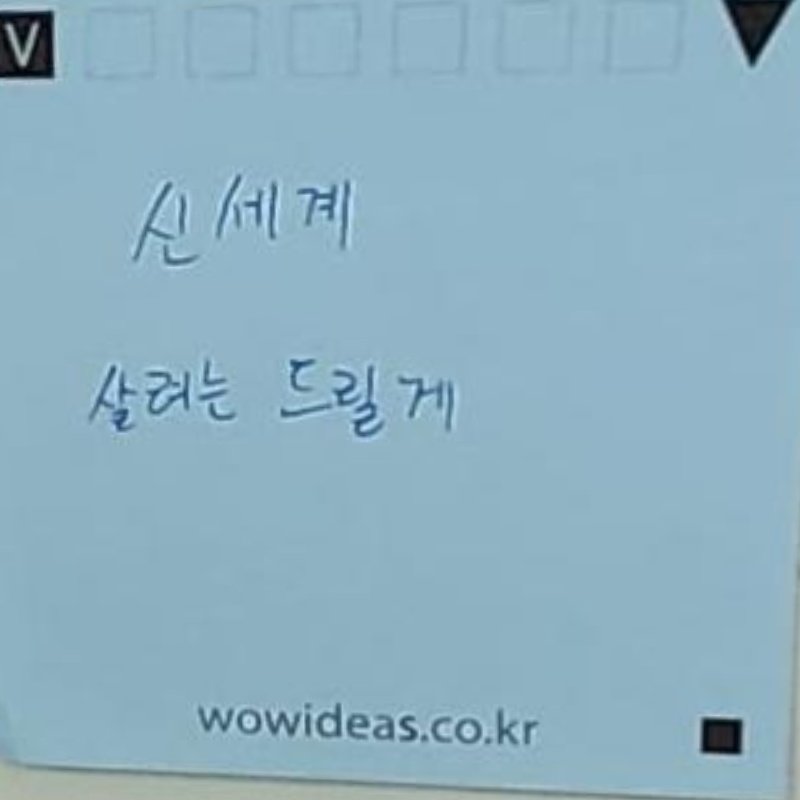 V
신세계
살려는 드릴게
wowideas.co.kr